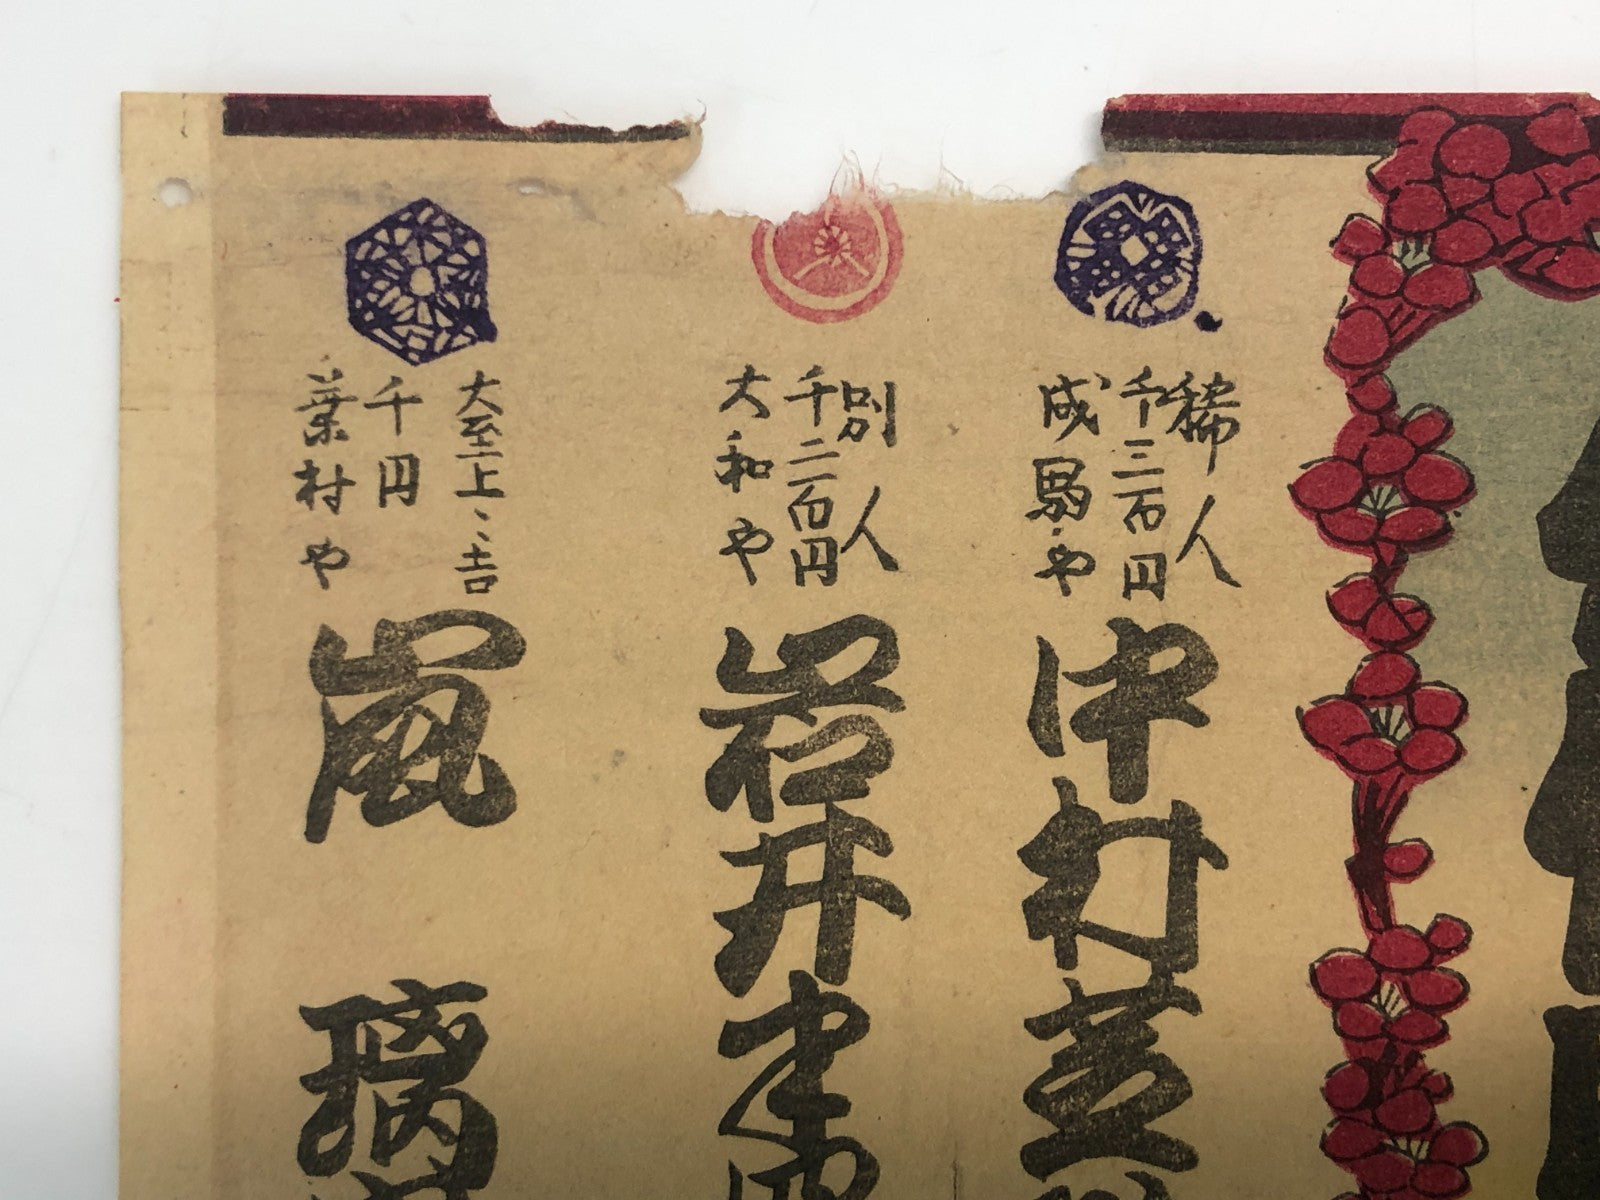 稀人
千三百円
成駒や
中村芝
別人
千二百円
大和や
岩井半四
大至上ゝ吉
千円
葉村や
嵐璃